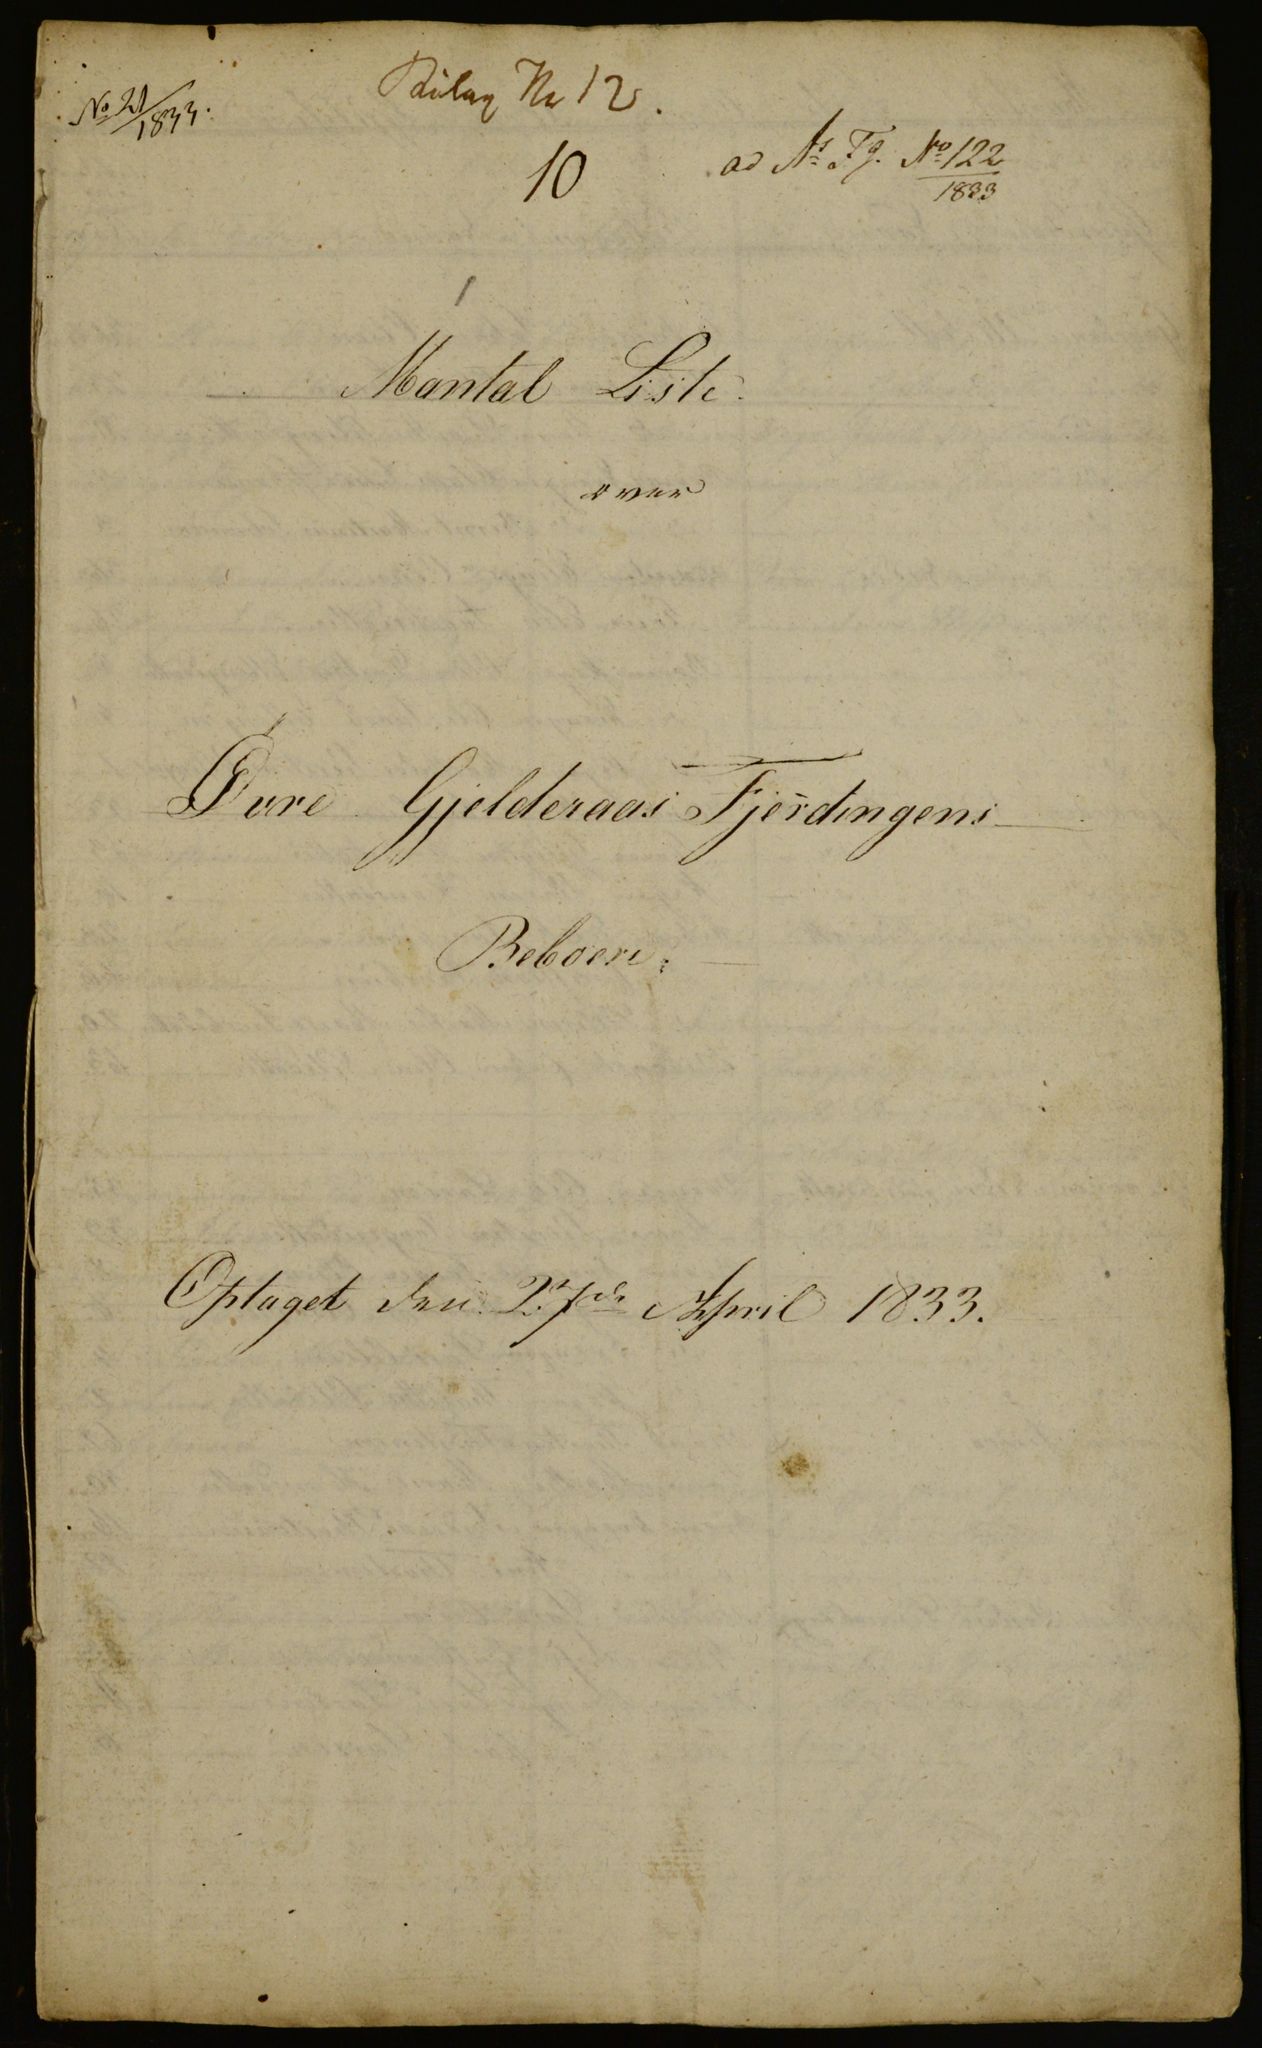 No 21/1833.
Bilag Nr 12.
10
ad As Fg. No 122/1833
Mantal Liste
over
Øvre Gjelderaas Fjerdingens
Beboere.
Optaget den 27de April 1833.